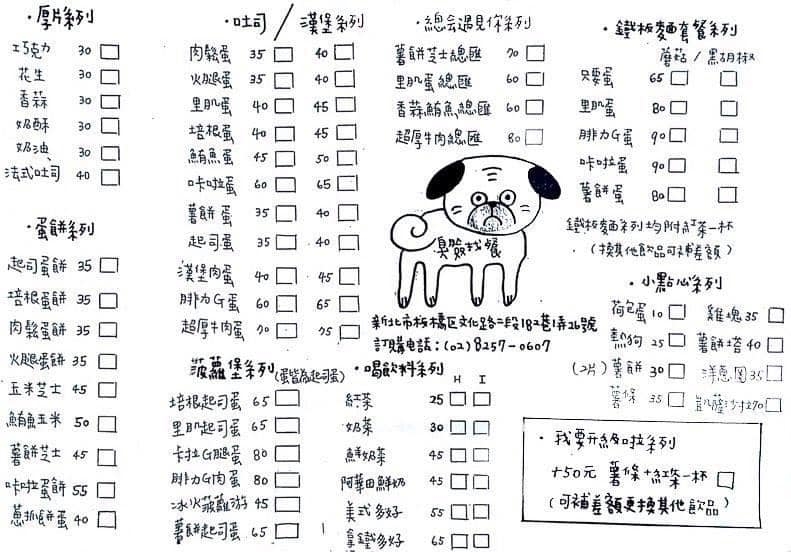 ·厚片系列
巧克力 30
花生 30
香蒜 30
奶酥 30
奶油 30
法式吐司 40
·蛋餅系列
起司蛋餅 35
培根蛋餅 35
肉鬆蛋餅 35
火腿蛋餅 35
玉米芝士 45
鮪魚玉米 50
薯餅芝士 45
咔啦蛋餅 55
蔥抓餅蛋 40
·吐司 / 漢堡系列
肉鬆蛋 35 40
火腿蛋 35 40
里肌蛋 40 45
培根蛋 40 45
鮪魚蛋 45 50
咔啦蛋 60 65
薯餅蛋 35 40
起司蛋 35 40
漢堡肉蛋 40 45
腓力G蛋 60 65
超厚牛肉蛋 70 75
菠蘿堡系列(蛋皆為起司蛋)
培根起司蛋 65
里肌起司蛋 65
卡拉G腿蛋 80
腓力G肉蛋 80
冰火菠蘿游 45
薯餅起司蛋 65
·總會遇見你系列
薯餅芝士總匯 70
里肌蛋總匯 60
香蒜鮪魚總匯 60
超厚牛肉總匯 80
臭殼找餐
新北市板橋區文化路二段182巷1弄26號
訂購電話:(02)8257-0607
·喝飲料系列 H I
紅茶 25
奶茶 30
鮮奶茶 45
阿華田鮮奶 45
美式多好 55
拿鐵多好 65
·鐵板麵套餐系列
蘑菇 / 黑胡椒
只要蛋 65
里肌蛋 80
腓力G蛋 90
咔啦蛋 90
薯餅蛋 80
鐵板麵系列均附紅茶一杯
(換其他飲品可補差額)
·小點心系列
荷包蛋 10 雞塊 35
熱狗 25 薯餅塔 40
(2片)薯餅 30 洋蔥圈 35
薯條 35 凱薩沙拉 70
·我要升級啦系列
+50元 薯條+紅茶一杯
(可補差額更換其他飲品)